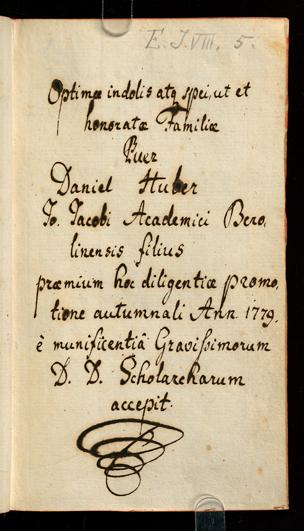 E. J. VIII. 5.
Optimæ indolis atq spei, ut et
honoratæ Familiæ
Puer
Daniel Huber
Jo. Jacobi Academici Bero,
linensis filius
præmium hoc diligentiæ promo,
tione autumnali Ann. 1779.
è munificentiâ Gravissimorum
D. D. Scholarcharum
accepit.